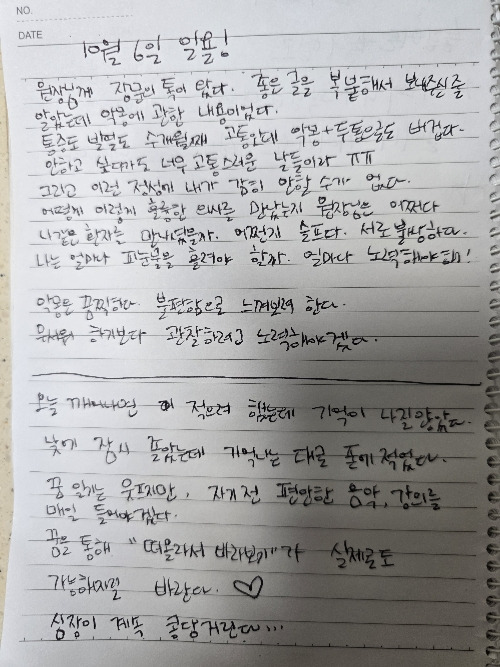 NO.
DATE
10월 6일 일욜!
원장님께 장문의 톡이 왔다. 좋은 글을 복붙해서 보내주신 줄
알았는데 악몽에 관한 내용이었다.
통증도 발열도 수개월째 고통인데 악몽+두통일로도 버겁다.
안하고 싶다가도 너무 고통스러운 날들이라 ㅠㅠ
그리고 이런 정성에 내가 감히 안할 수가 없다.
어떻게 이렇게 훌륭한 의사를 만났는지 원장님은 어쩌다
나같은 환자를 만나셨을까. 어쩐지 슬프다. 서로 불쌍하다.
나는 얼마나 피눈물을 흘려야 할까. 얼마나 노력해야해!
악몽은 끔찍하다. 불편함으로 느껴보려 한다.
무서워 하기보다 관찰하려고 노력해야겠다.
오늘 깨어나면 적으려 했는데 기억이 나질 않았다.
낮에 잠시 졸았는데 기억나는 대로 폰에 적었다.
꿈 일기는 웃프지만, 자기전 편안한 음악, 강의를
매일 들어야겠다.
꿈을 통해 "떠올라서 바라보기"가 실제로도
가능해지길 바란다. ♡
심장이 계속 콩당거린다...